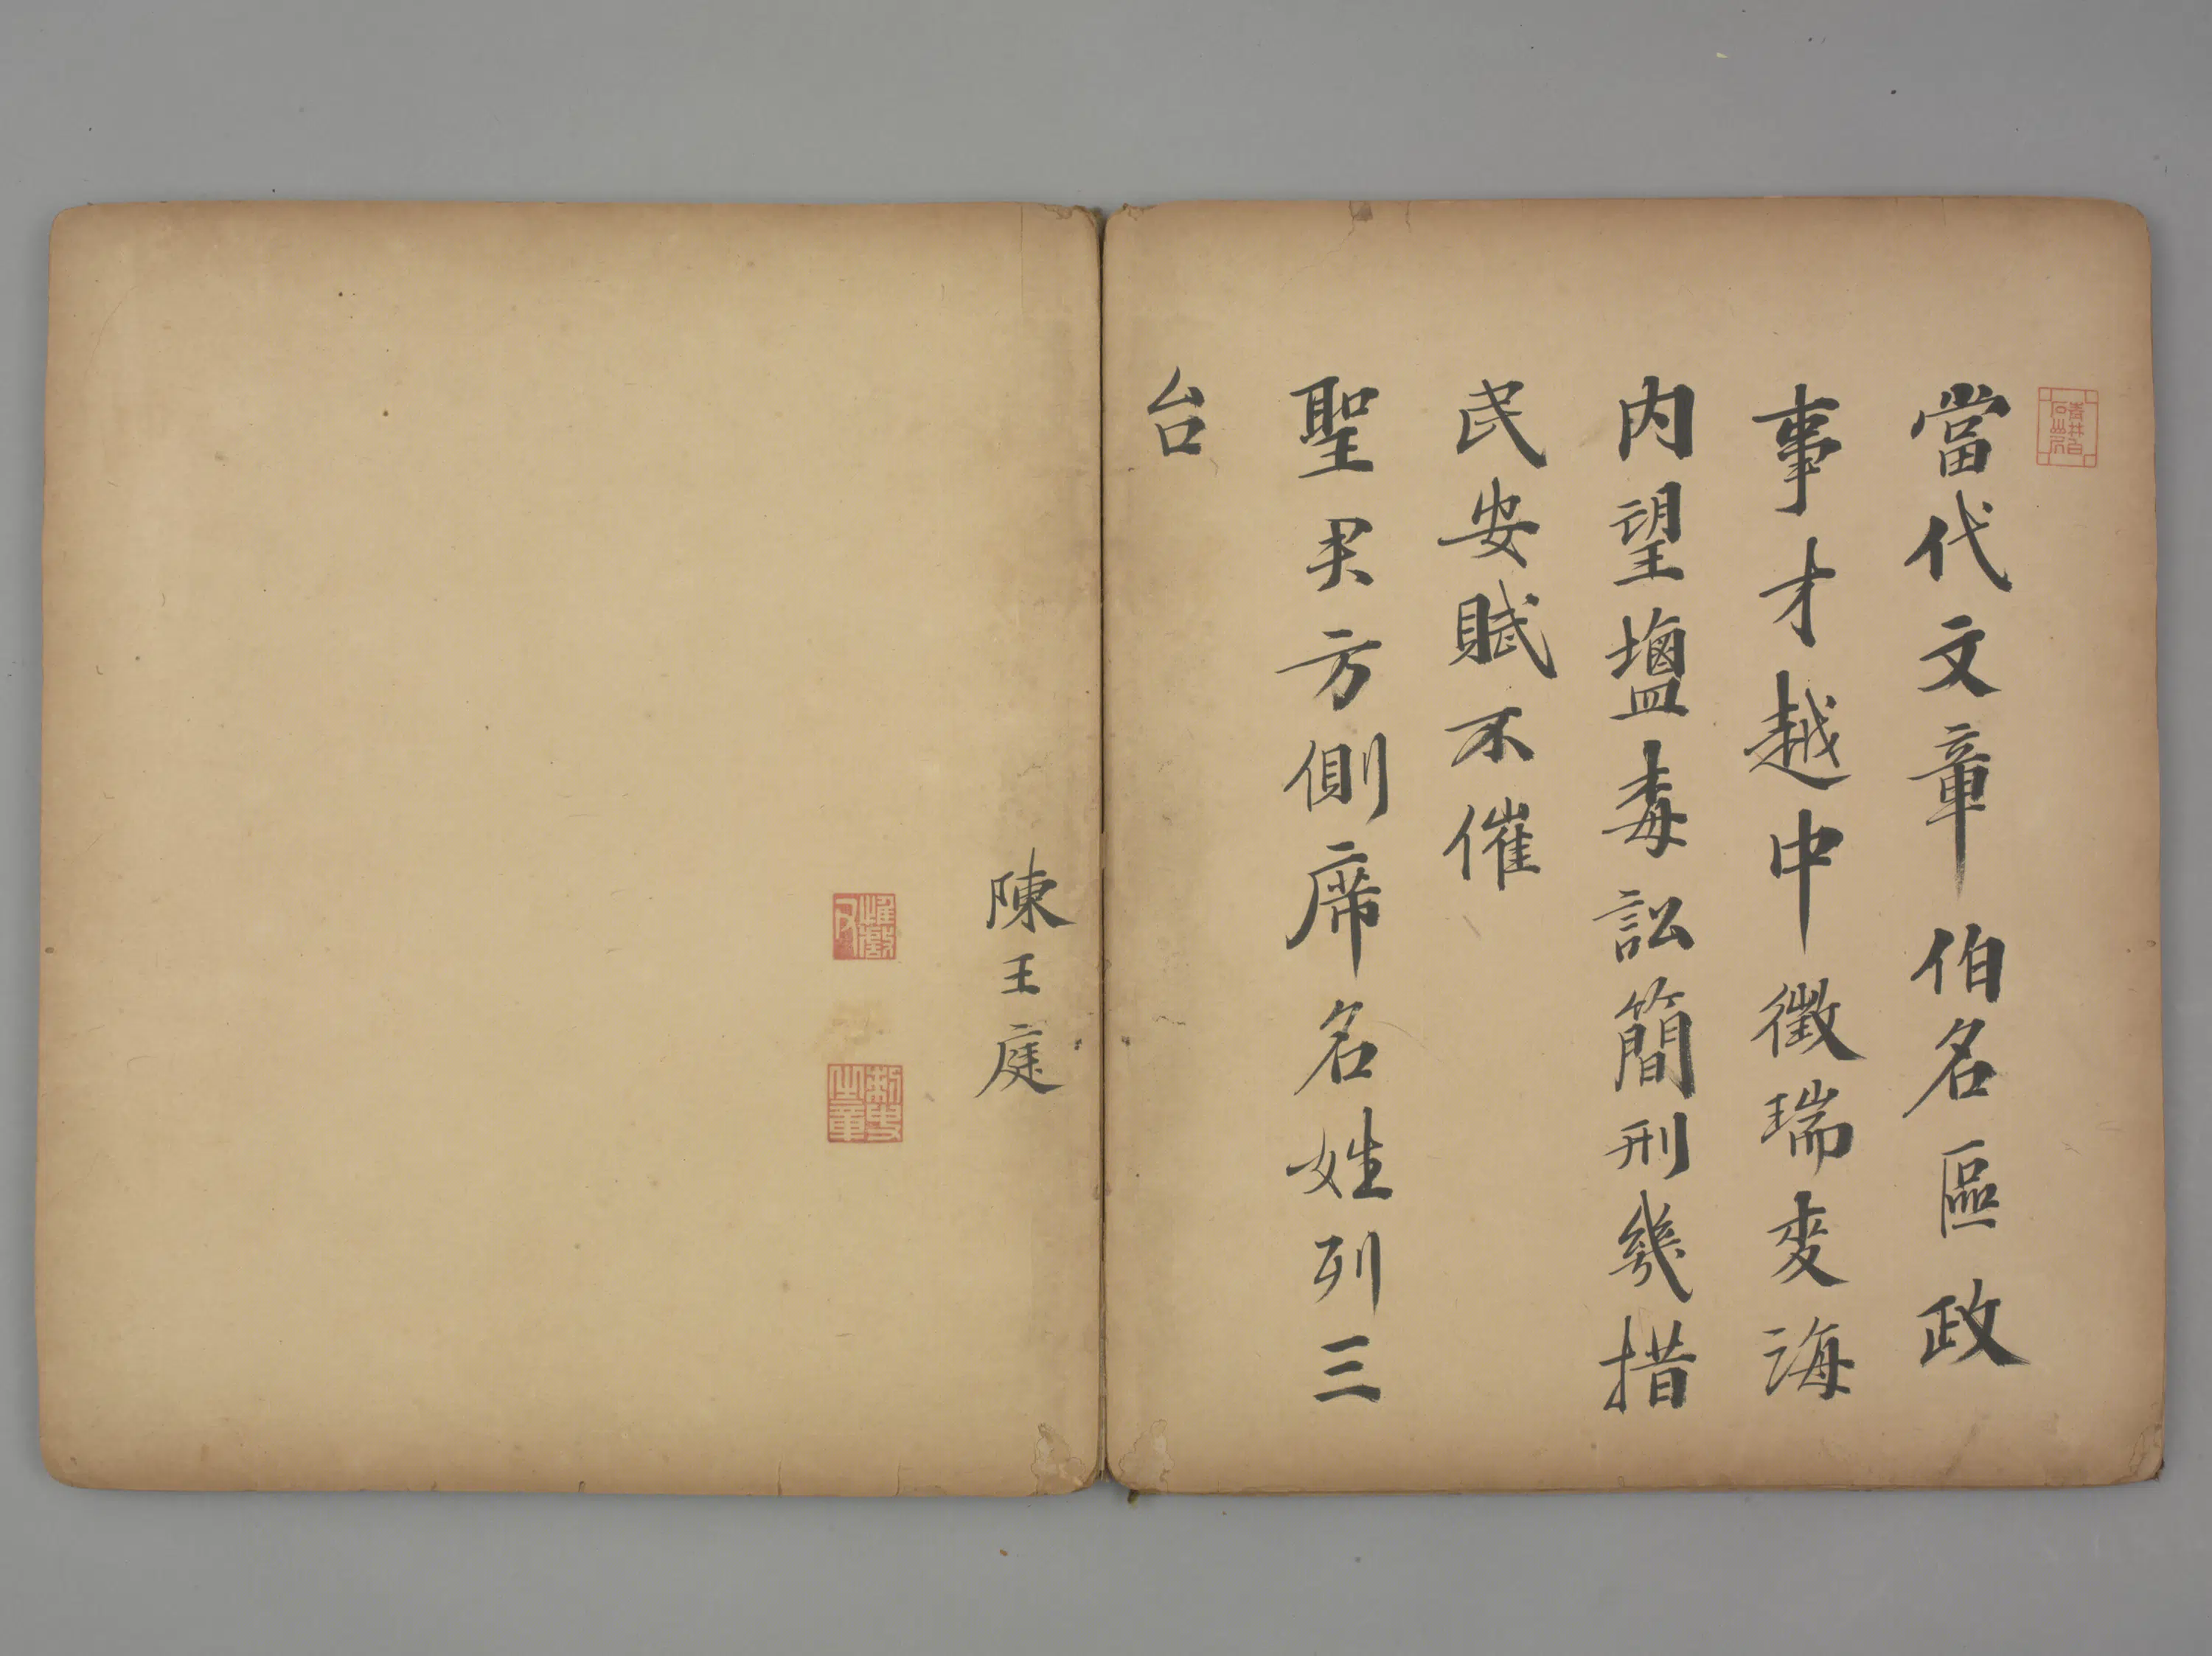 當代文章伯名區政
事才越中徵瑞麦海
内望塩梅訟簡刑幾措
民安賦不催
聖君方側席名姓列三
台
陳王庭